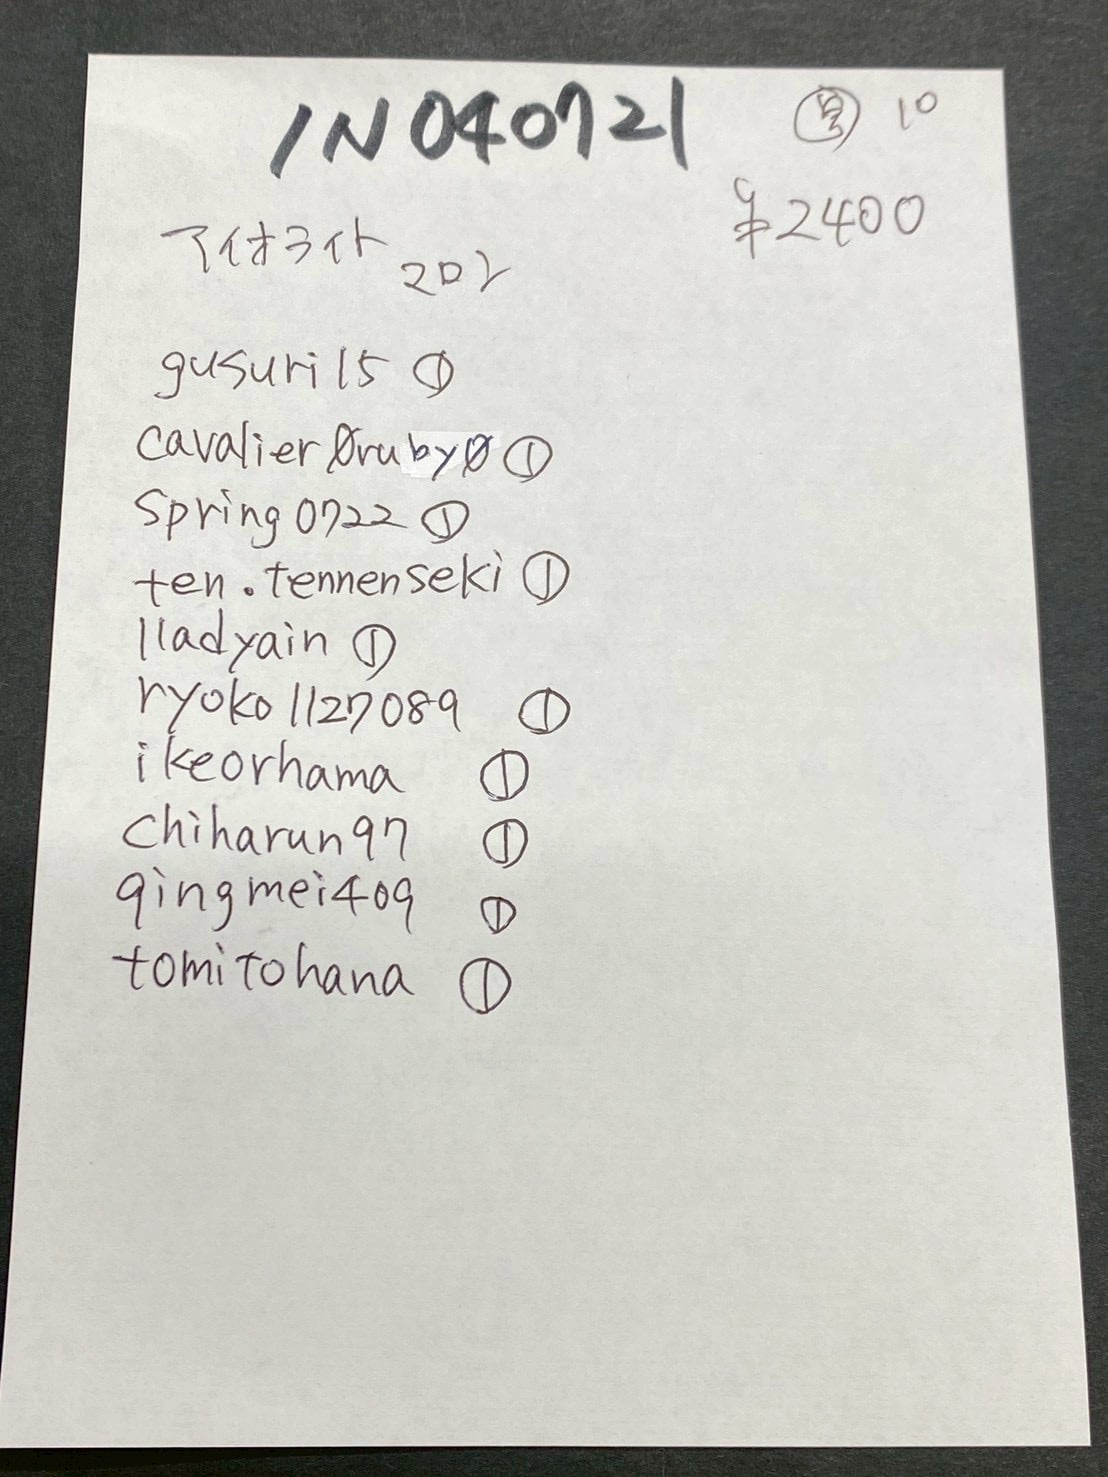 IN040721
10
¥2400
アイオライト
コロン
gusuri15 ①
cavalier0ruby0 ①
spring0722 ①
ten.tennenseki ①
lladyain ①
ryoko1127089 ①
ikeorhama ①
chiharun97 ①
qingmei409 ①
tomitohana ①